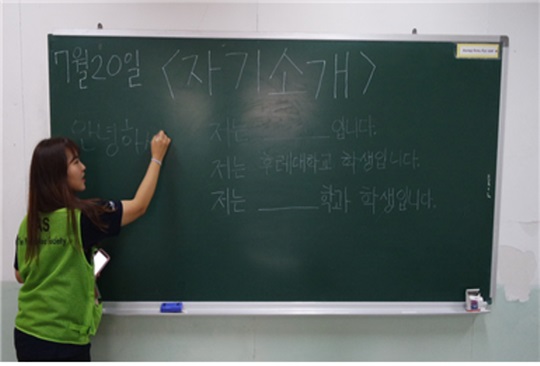 7월20일 <자기소개>
안녕하
저는 ______입니다.
저는 후레대학교 학생입니다.
저는 ______학과 학생입니다.